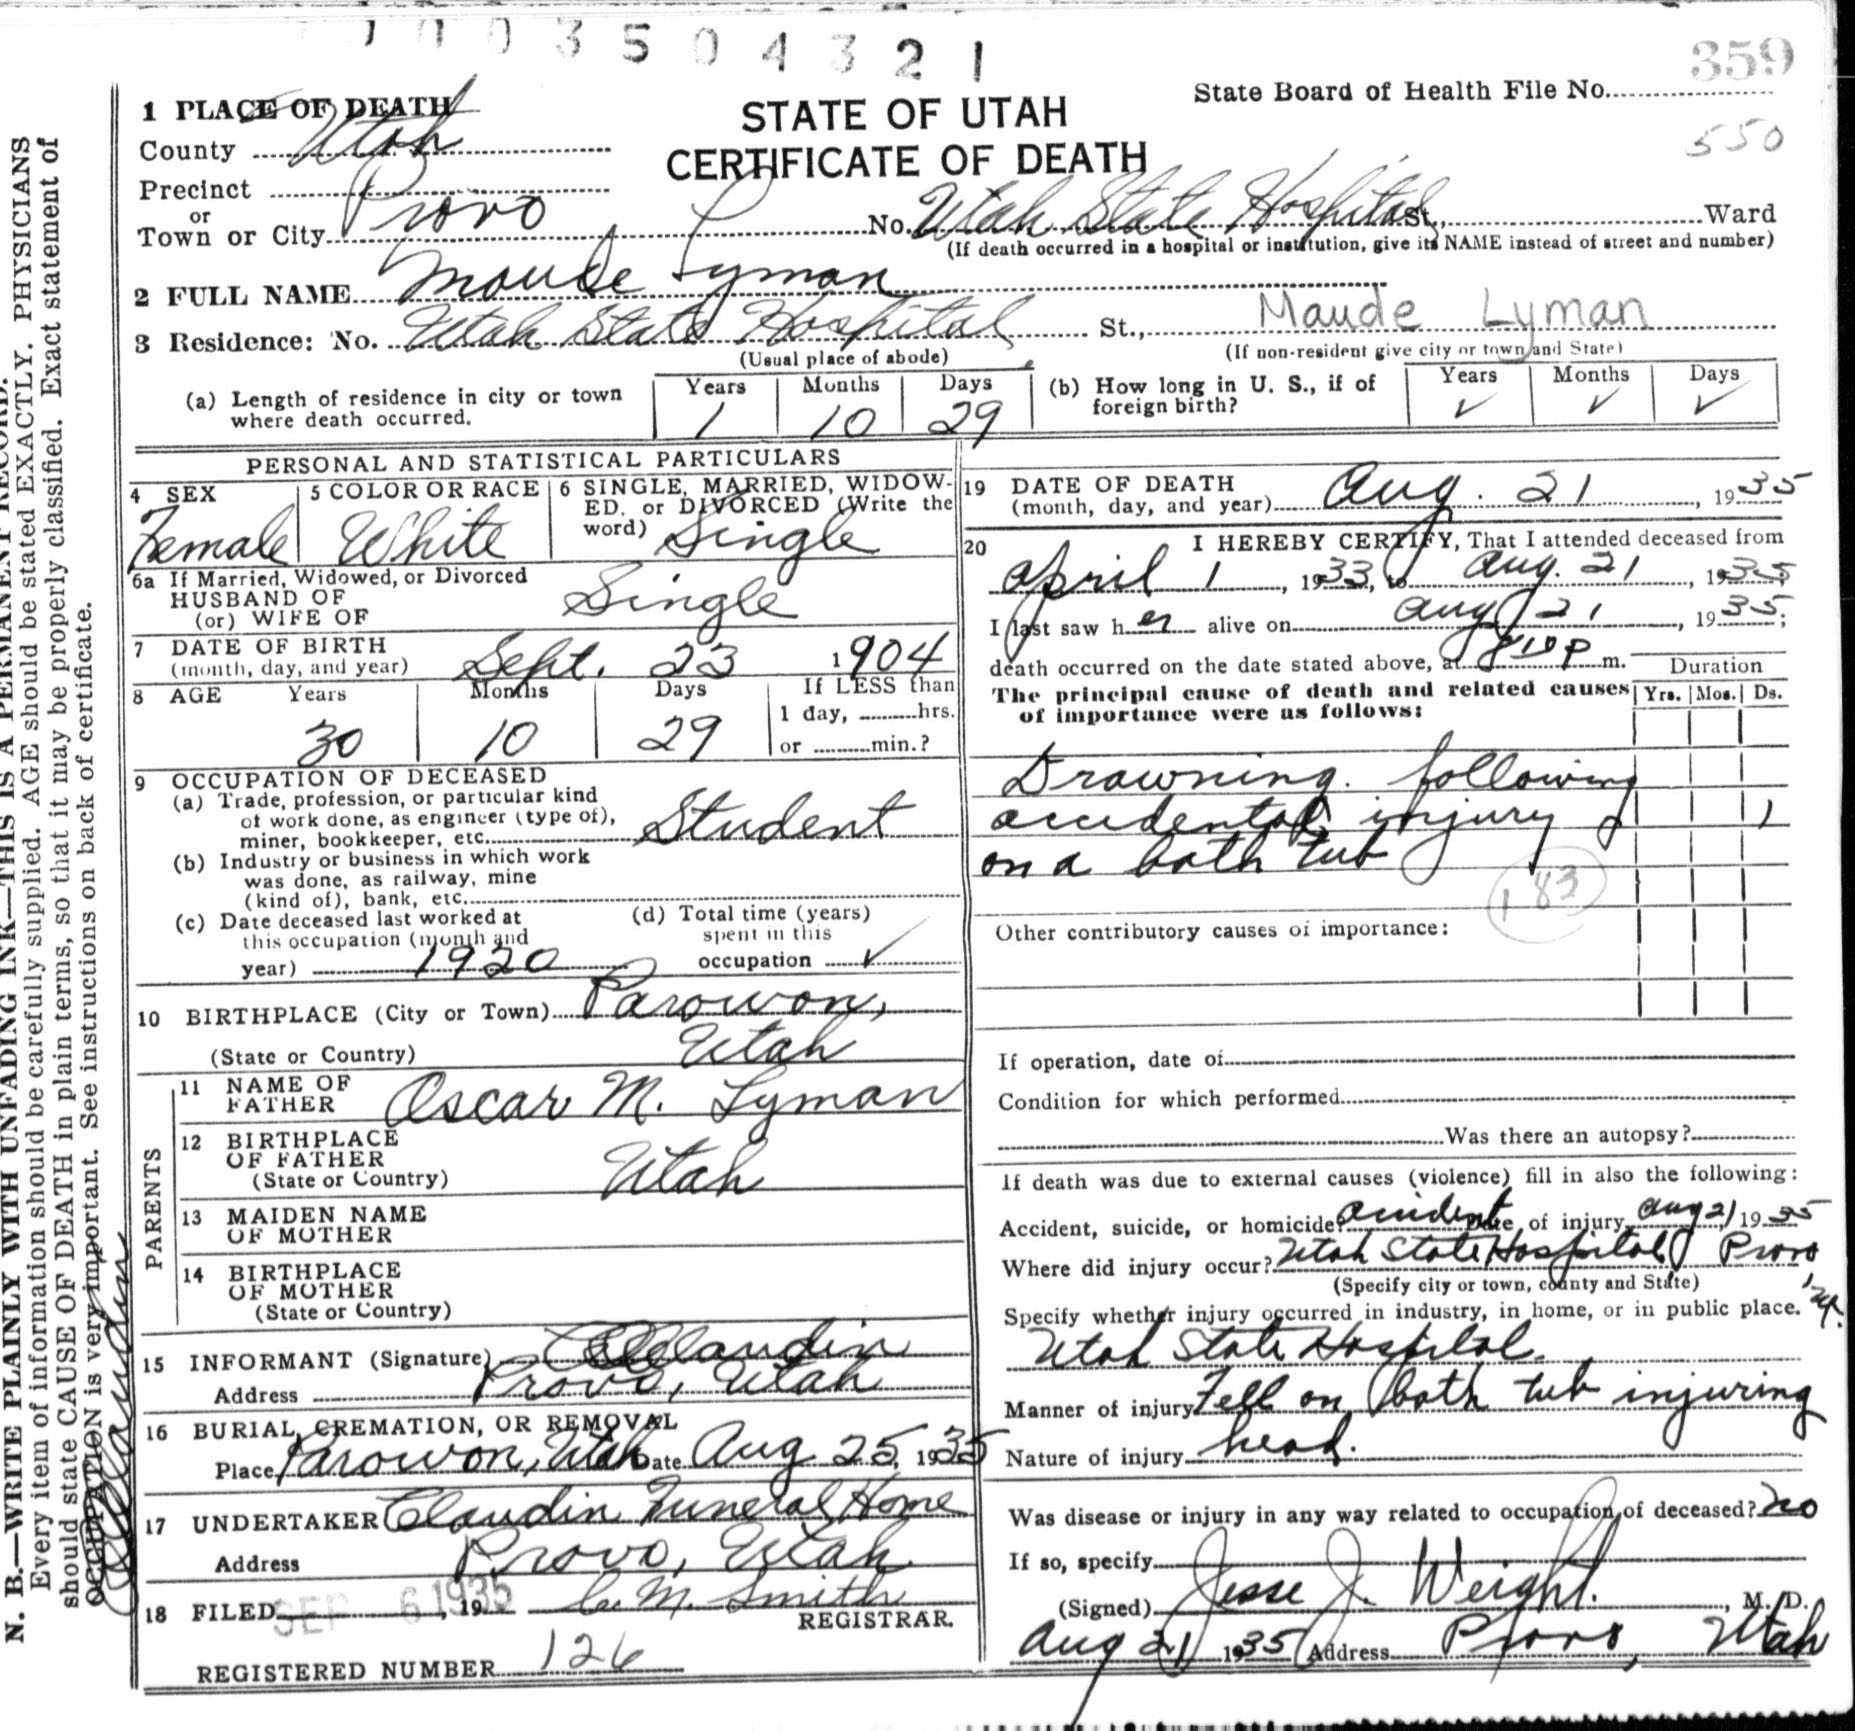 0003504321
359
1 PLACE OF DEATH
STATE OF UTAH
CERTIFICATE OF DEATH
State Board of Health File No.
550
County Utah
Precinct
or
Town or City Provo No. Utah State Hospital St., Ward
(If death occurred in a hospital or institution, give its NAME instead of street and number)
2 FULL NAME Maude Lyman
3 Residence: No. Utah State Hospital St., Maude Lyman
(Usual place of abode) (If non-resident give city or town and State)
(a) Length of residence in city or town where death occurred. Years 1 Months 10 Days 29
(b) How long in U. S., if of foreign birth? Years ✓ Months ✓ Days ✓
PERSONAL AND STATISTICAL PARTICULARS
4 SEX Female
5 COLOR OR RACE White
6 SINGLE, MARRIED, WIDOW-
ED, or DIVORCED (Write the
word) Single
6a If Married, Widowed, or Divorced
HUSBAND OF
(or) WIFE OF Single
7 DATE OF BIRTH
(month, day, and year) Sept. 23 1904
8 AGE Years 30 Months 10 Days 29
If LESS than
1 day, hrs.
or min.?
9 OCCUPATION OF DECEASED
(a) Trade, profession, or particular kind
of work done, as engineer (type of),
miner, bookkeeper, etc. Student
(b) Industry or business in which work
was done, as railway, mine
(kind of), bank, etc.
(c) Date deceased last worked at
this occupation (month and
year) 1920
(d) Total time (years)
spent in this
occupation ✓
10 BIRTHPLACE (City or Town) Parowon,
(State or Country) Utah
PARENTS
11 NAME OF
FATHER Oscar M. Lyman
12 BIRTHPLACE
OF FATHER
(State or Country) Utah
13 MAIDEN NAME
OF MOTHER
14 BIRTHPLACE
OF MOTHER
(State or Country)
15 INFORMANT (Signature) Claudin
Address Provo, Utah
16 BURIAL, CREMATION, OR REMOVAL
Place Parowon, Utah Date Aug 25, 1935
17 UNDERTAKER Claudin Funeral Home
Address Provo, Utah.
18 FILED SEP 6 1935, 19 C. M. Smith
REGISTRAR.
REGISTERED NUMBER 126
19 DATE OF DEATH
(month, day, and year) Aug. 21, 1935
20 I HEREBY CERTIFY, That I attended deceased from
April 1, 1933, to Aug. 21, 1935;
I last saw her alive on Aug 21, 1935;
death occurred on the date stated above, at 810 P m.
The principal cause of death and related causes
of importance were as follows:
Duration
Yrs. Mos. Ds.
Drowning. following
accidental injury 1
on a bath tub
183
Other contributory causes of importance:
If operation, date of
Condition for which performed
Was there an autopsy?
If death was due to external causes (violence) fill in also the following:
Accident, suicide, or homicide? accident Date of injury Aug 21 1935
Where did injury occur? Utah State Hospital Provo
(Specify city or town, county and State)
Specify whether injury occurred in industry, in home, or in public place.
Utah State Hospital.
Manner of injury Fell on bath tub injuring
Nature of injury head.
Was disease or injury in any way related to occupation of deceased? no
If so, specify
(Signed) Jesse J. Weight, M. D.
Aug 21 1935 Address Provo, Utah
N. B.—WRITE PLAINLY WITH UNFADING INK—THIS IS A PERMANENT RECORD.
Every item of information should be carefully supplied. AGE should be stated EXACTLY. PHYSICIANS
should state CAUSE OF DEATH in plain terms, so that it may be properly classified. Exact statement of
OCCUPATION is very important. See instructions on back of certificate.